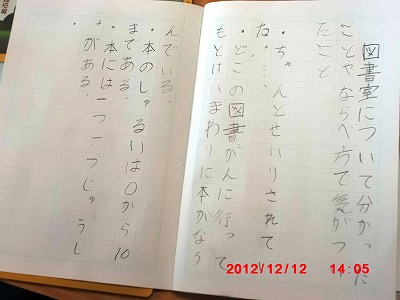 図書室について分かった
ことやならべ方で気がつい
たこと
・ちゃんとせいりされて
ね。
・どこの図書がんに行って
もとけいまわりに本がなら
んでいる。
・本のしゅるいは0から10
まである。
・本には一つ一つじゅうし
ょがある。
2012/12/12 14:05